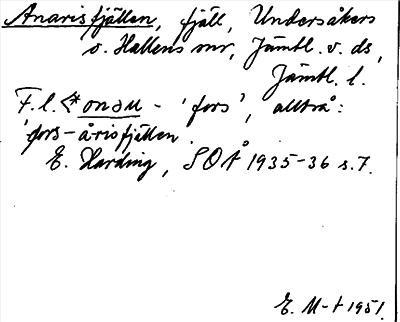 Anarisfjällen, fjäll, Undersåkers
o. Hallens snr, Jämtl. v. ds,
Jämtl. l.
F. l. <*onəu - 'fors', alltså:
'fors-årisfjällen'.
E. Harding, SOÅ 1935-36 s. 7.
E. M-t 1951.